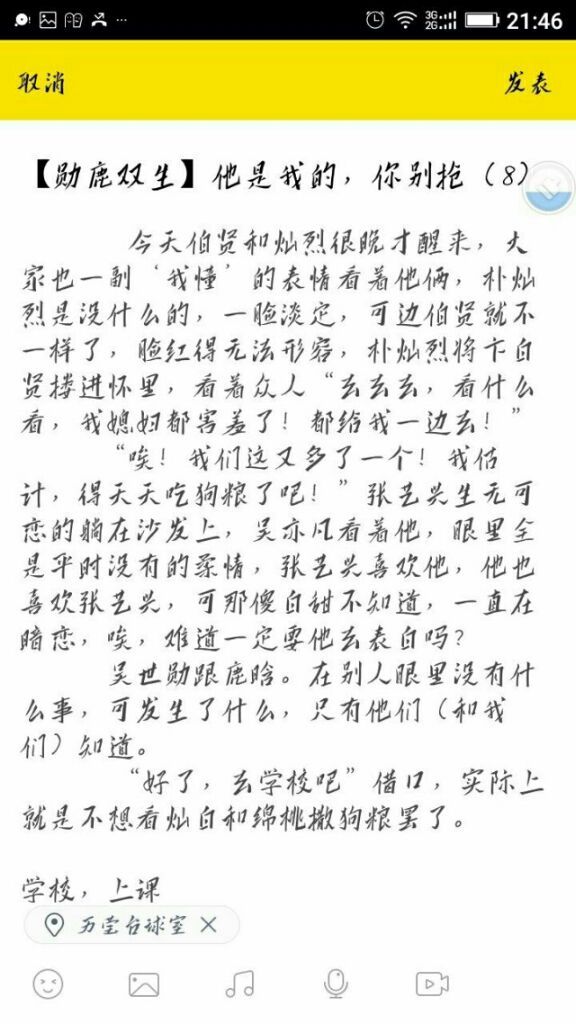 3G
2G
21:46
取消
发表
【勋鹿双生】他是我的，你别抢（8）
今天伯贤和灿烈很晚才醒来，大
家也一副‘我懂’的表情看着他俩，朴灿
烈是没什么的，一脸淡定，可边伯贤就不
一样了，脸红得无法形容，朴灿烈将卞白
贤搂进怀里，看着众人“去去去，看什么
看，我媳妇都害羞了！都给我一边去！”
“唉！我们这又多了一个！我估
计，得天天吃狗粮了吧！”张艺兴生无可
恋的躺在沙发上，吴亦凡看着他，眼里全
是平时没有的柔情，张艺兴喜欢他，他也
喜欢张艺兴，可那傻白甜不知道，一直在
暗恋，唉，难道一定要他去表白吗？
吴世勋跟鹿晗。在别人眼里没有什
么事，可发生了什么，只有他们（和我
们）知道。
“好了，去学校吧”借口，实际上
就是不想看灿白和绵桃撒狗粮罢了。
学校，上课
万莹台球室